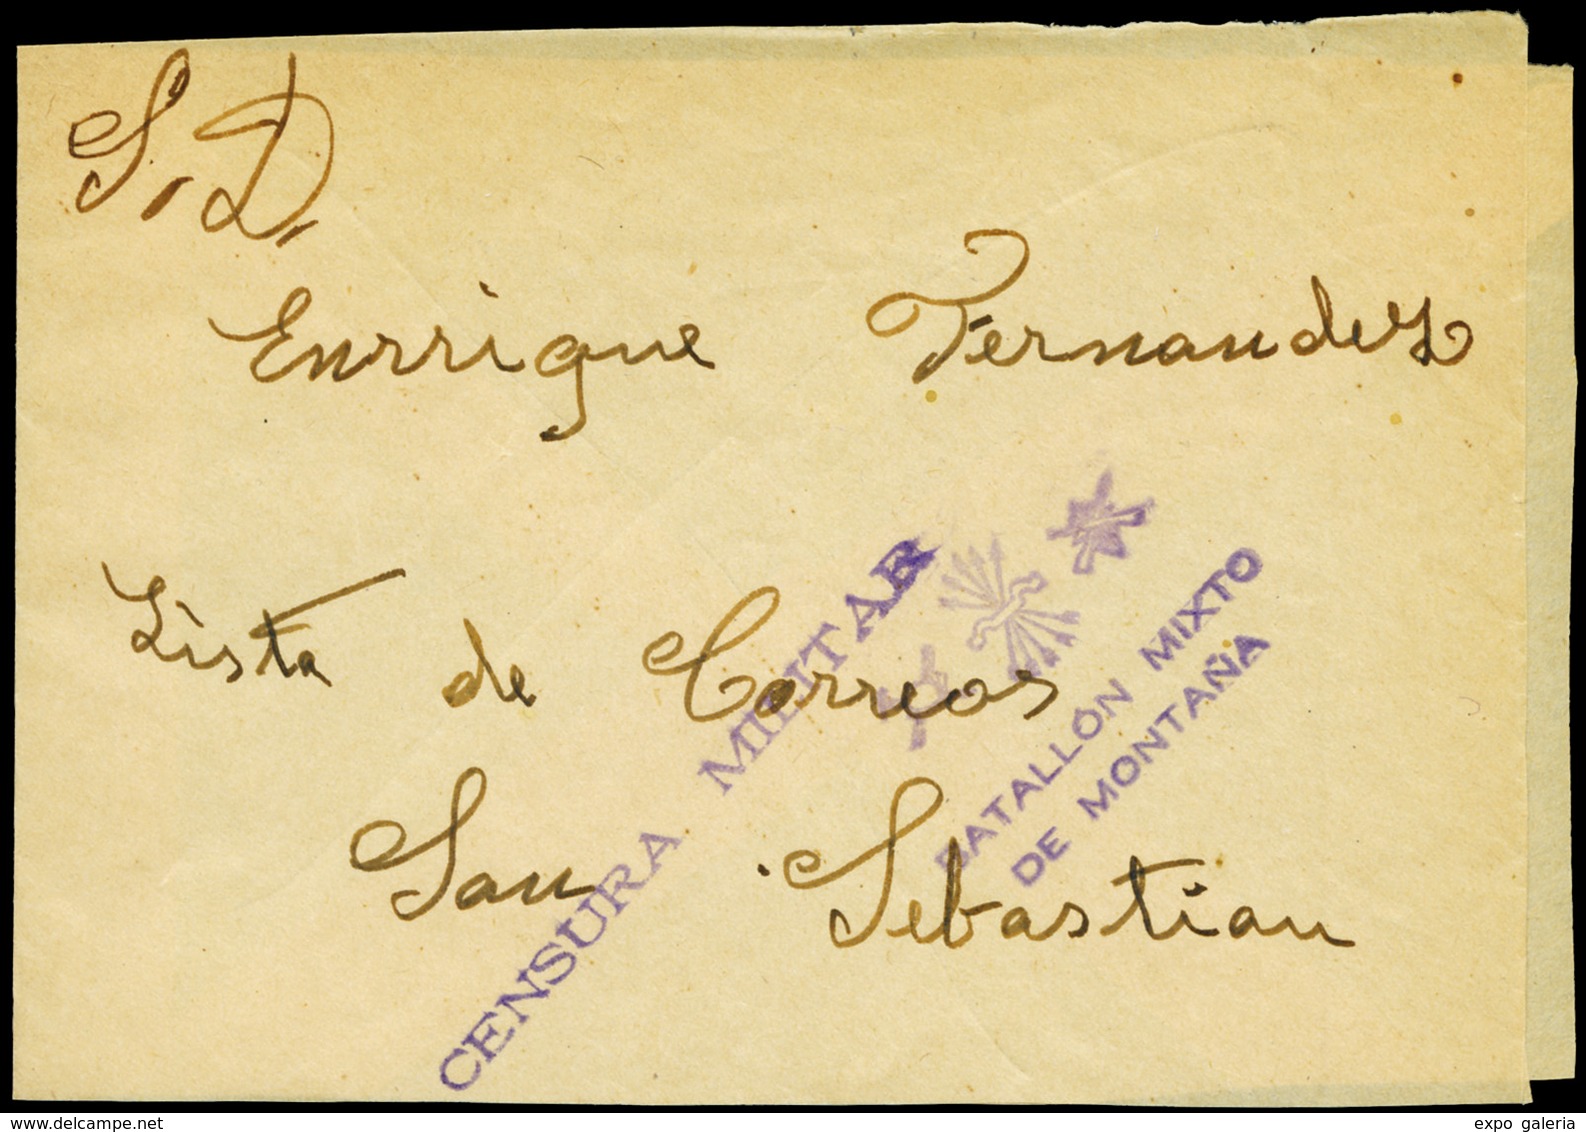 S. D.
Enrrique Fernandez
Lista de Correos
San Sebastian
CENSURA MILITAR
BATALLÓN MIXTO
DE MONTAÑA
delcampe.net
expo galeria